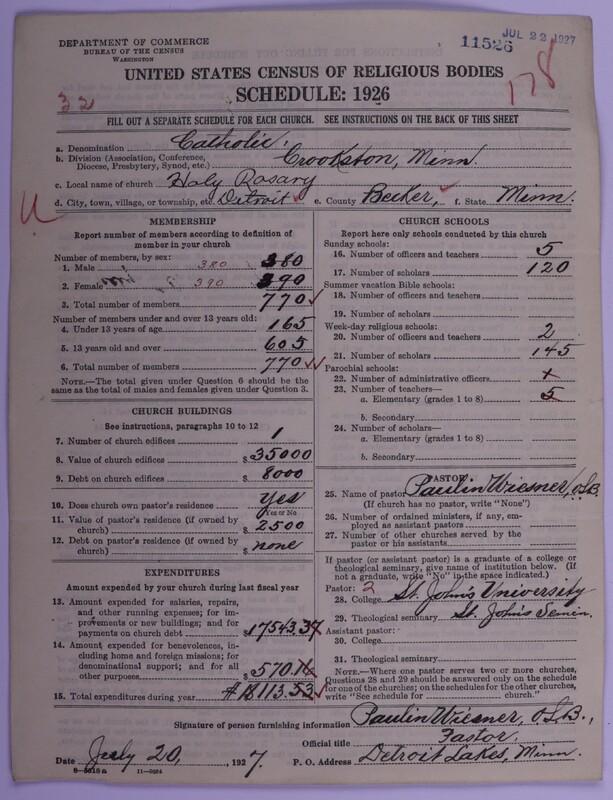 DEPARTMENT OF COMMERCE
BUREAU OF THE CENSUS
WASHINGTON
11526
JUL 22 1927
178
32
UNITED STATES CENSUS OF RELIGIOUS BODIES
SCHEDULE: 1926
FILL OUT A SEPARATE SCHEDULE FOR EACH CHURCH. SEE INSTRUCTIONS ON THE BACK OF THIS SHEET
a. Denomination Catholic.
b. Division (Association, Conference, Diocese, Presbytery, Synod, etc.) Crookston, Minn.
c. Local name of church Holy Rosary
d. City, town, village, or township, etc. Detroit e. County Becker, f. State Minn.
MEMBERSHIP
Report number of members according to definition of
member in your church
Number of members, by sex:
1. Male 380 380
2. Female 390 390
3. Total number of members 770
Number of members under and over 13 years old:
4. Under 13 years of age 165
5. 13 years old and over 605
6. Total number of members 770
NOTE.—The total given under Question 6 should be
same as the total of males and females given under Question 3.
CHURCH BUILDINGS
See instructions, paragraphs 10 to 12
7. Number of church edifices 1
8. Value of church edifices $35000
9. Debt on church edifices $8000
10. Does church own pastor's residence? Yes
Yes or No
11. Value of pastor's residence (if owned by
church) $2500
12. Debt on pastor's residence (if owned by
church) $none
EXPENDITURES
Amount expended by your church during last fiscal year
13. Amount expended for salaries, repairs,
and other running expenses; for im-
provements or new buildings; and for
payments on church debt $17543.37
14. Amount expended for benevolences, in-
cluding home and foreign missions; for
denominational support; and for all
other purposes $570.16
15. Total expenditures during year $18113.53
CHURCH SCHOOLS
Report here only schools conducted by this church
Sunday schools:
16. Number of officers and teachers 5
17. Number of scholars 120
Summer vacation Bible schools:
18. Number of officers and teachers
19. Number of scholars
Week-day religious schools:
20. Number of officers and teachers 2
21. Number of scholars 145
Parochial schools:
22. Number of administrative officers
23. Number of teachers—
a. Elementary (grades 1 to 8) 5
b. Secondary
24. Number of scholars—
a. Elementary (grades 1 to 8)
b. Secondary
PASTOR
25. Name of pastor Paulin Wiesner, O.S.B.
(If church has no pastor, write "None")
26. Number of ordained ministers, if any, em-
ployed as assistant pastors
27. Number of other churches served by the
pastor or his assistants
If pastor (or assistant pastor) is a graduate of a college or
theological seminary, give name of institution below. (If
not a graduate, write "No" in the space indicated.)
Pastor: 2
28. College St. John's University
29. Theological seminary St. John's Semin.
Assistant pastor:
30. College
31. Theological seminary
NOTE.—Where one pastor serves two or more churches,
Questions 28 and 29 should be answered only on the schedule
for one of the churches; on the schedules for the other churches,
write "See schedule for church."
Signature of person furnishing information Paulin Wiesner, O.S.B.,
Official title Pastor.
Date July 20, 1927. P. O. Address Detroit Lakes, Minn.
8-5618a 11-9684